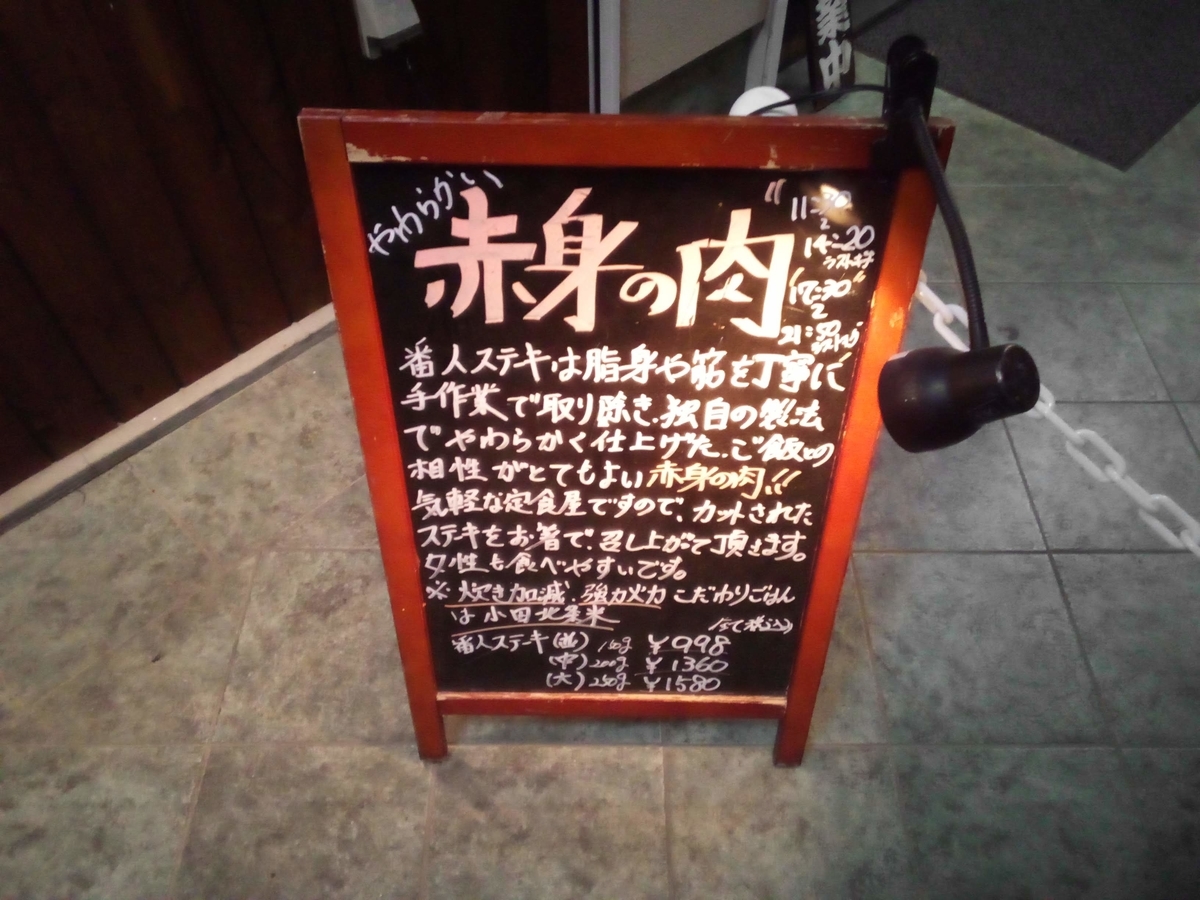 業中
やわらかい
赤身の肉
14:20
ラスト
17:30
21:
番人ステキは脂身や筋を丁寧に
手作業で取り除き、独自の製法
でやわらかく仕上げた、ご飯との
相性がとてもよい赤身の肉!!
気軽な定食屋ですので、カットされた
ステキをお箸で、召し上がって頂きます。
女性も食べやすいです。
※炊き加減、強力火力こだわりごはん
は小田北条米
(税込)
番人ステキ(並) 150g ¥998
(中) 200g ¥1360
(大) 250g ¥1580